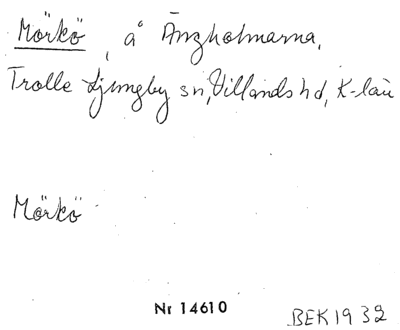 Mörkö, å Ängholmarna,
Trolle Ljungby sn, Villands hd, K-län
Mörkö
Nr 14610
BEK 1932